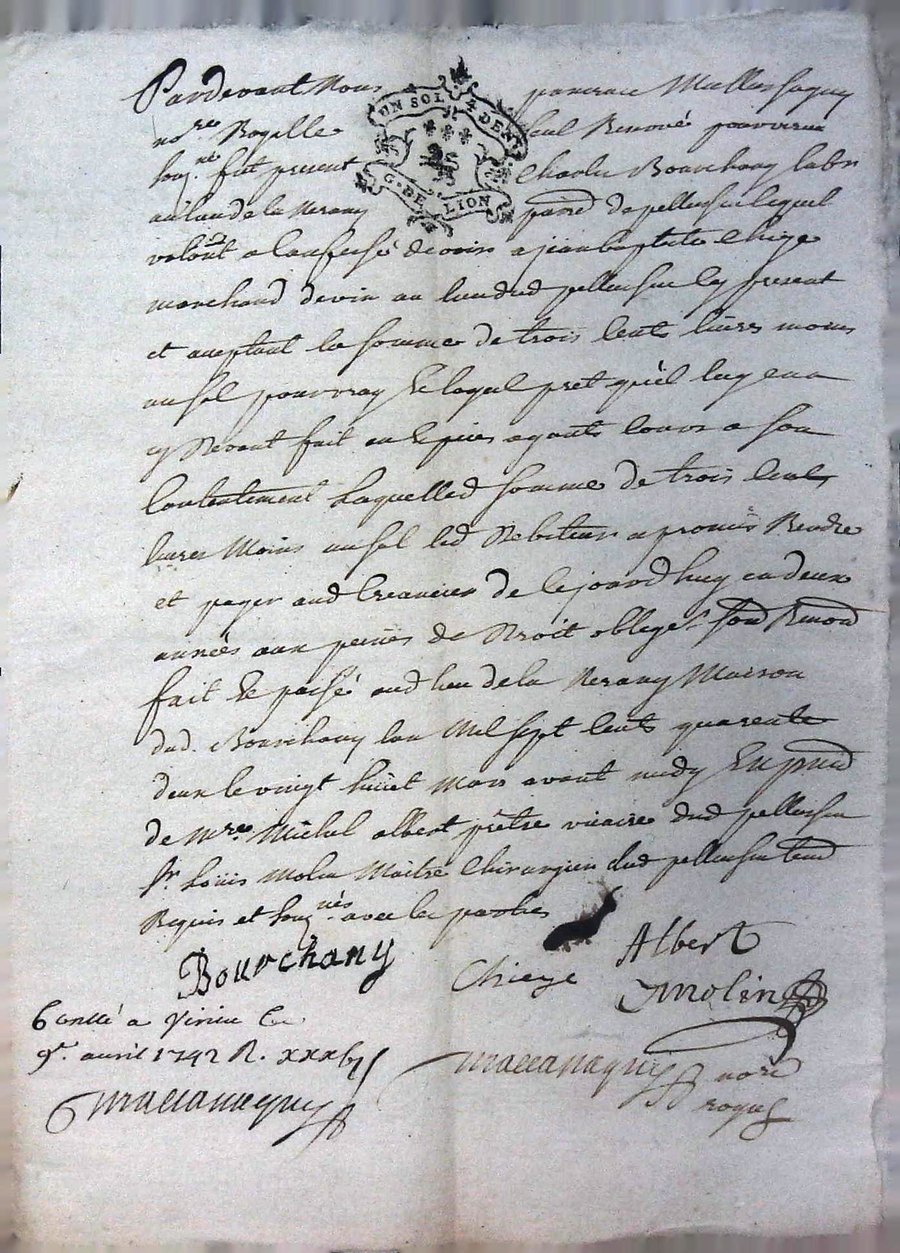 Pardevant Nous
UN SOL 4 DEN.
G. DE LION
no.re Royal
seul Renové pourvieue
soug.né fut present
Charles Bourchany labr
au lieu de la Nerany
parr.e de pellussin lequel
volont a confessé devoir a jean baptiste Chieze
marchand devin au lieu dud pellussin Icy present
et aceptant la somme de trois cent livres moins
un sol pour vray Et loyal pret qu'il luy en a
cy Devant fait en Especes ayants cours a son
Contentement Laquelled somme de trois cents
livres Moins un sol led Debiteur a promis Rendre
et payer aud Creancier de cejourdhuy en deux
années aux peines de Droit oblige.s soud Renond
fait Et passé aud lieu de la Nerany Maison
dud. Bourchany lan Mil sept cents quarente
deux le vingt huict Mars avant midy En pnce
de M.re Michel albert prêtre vicaire dud pellussin
Sr. Loüis Molin Maitre Chirurgien dud pellussin
Requis et soug.nés avec les parties
Bourchany
Chieze
Albert
Molin
Conllé a Virieu le
9e. avril 1742 R.
nore
royal